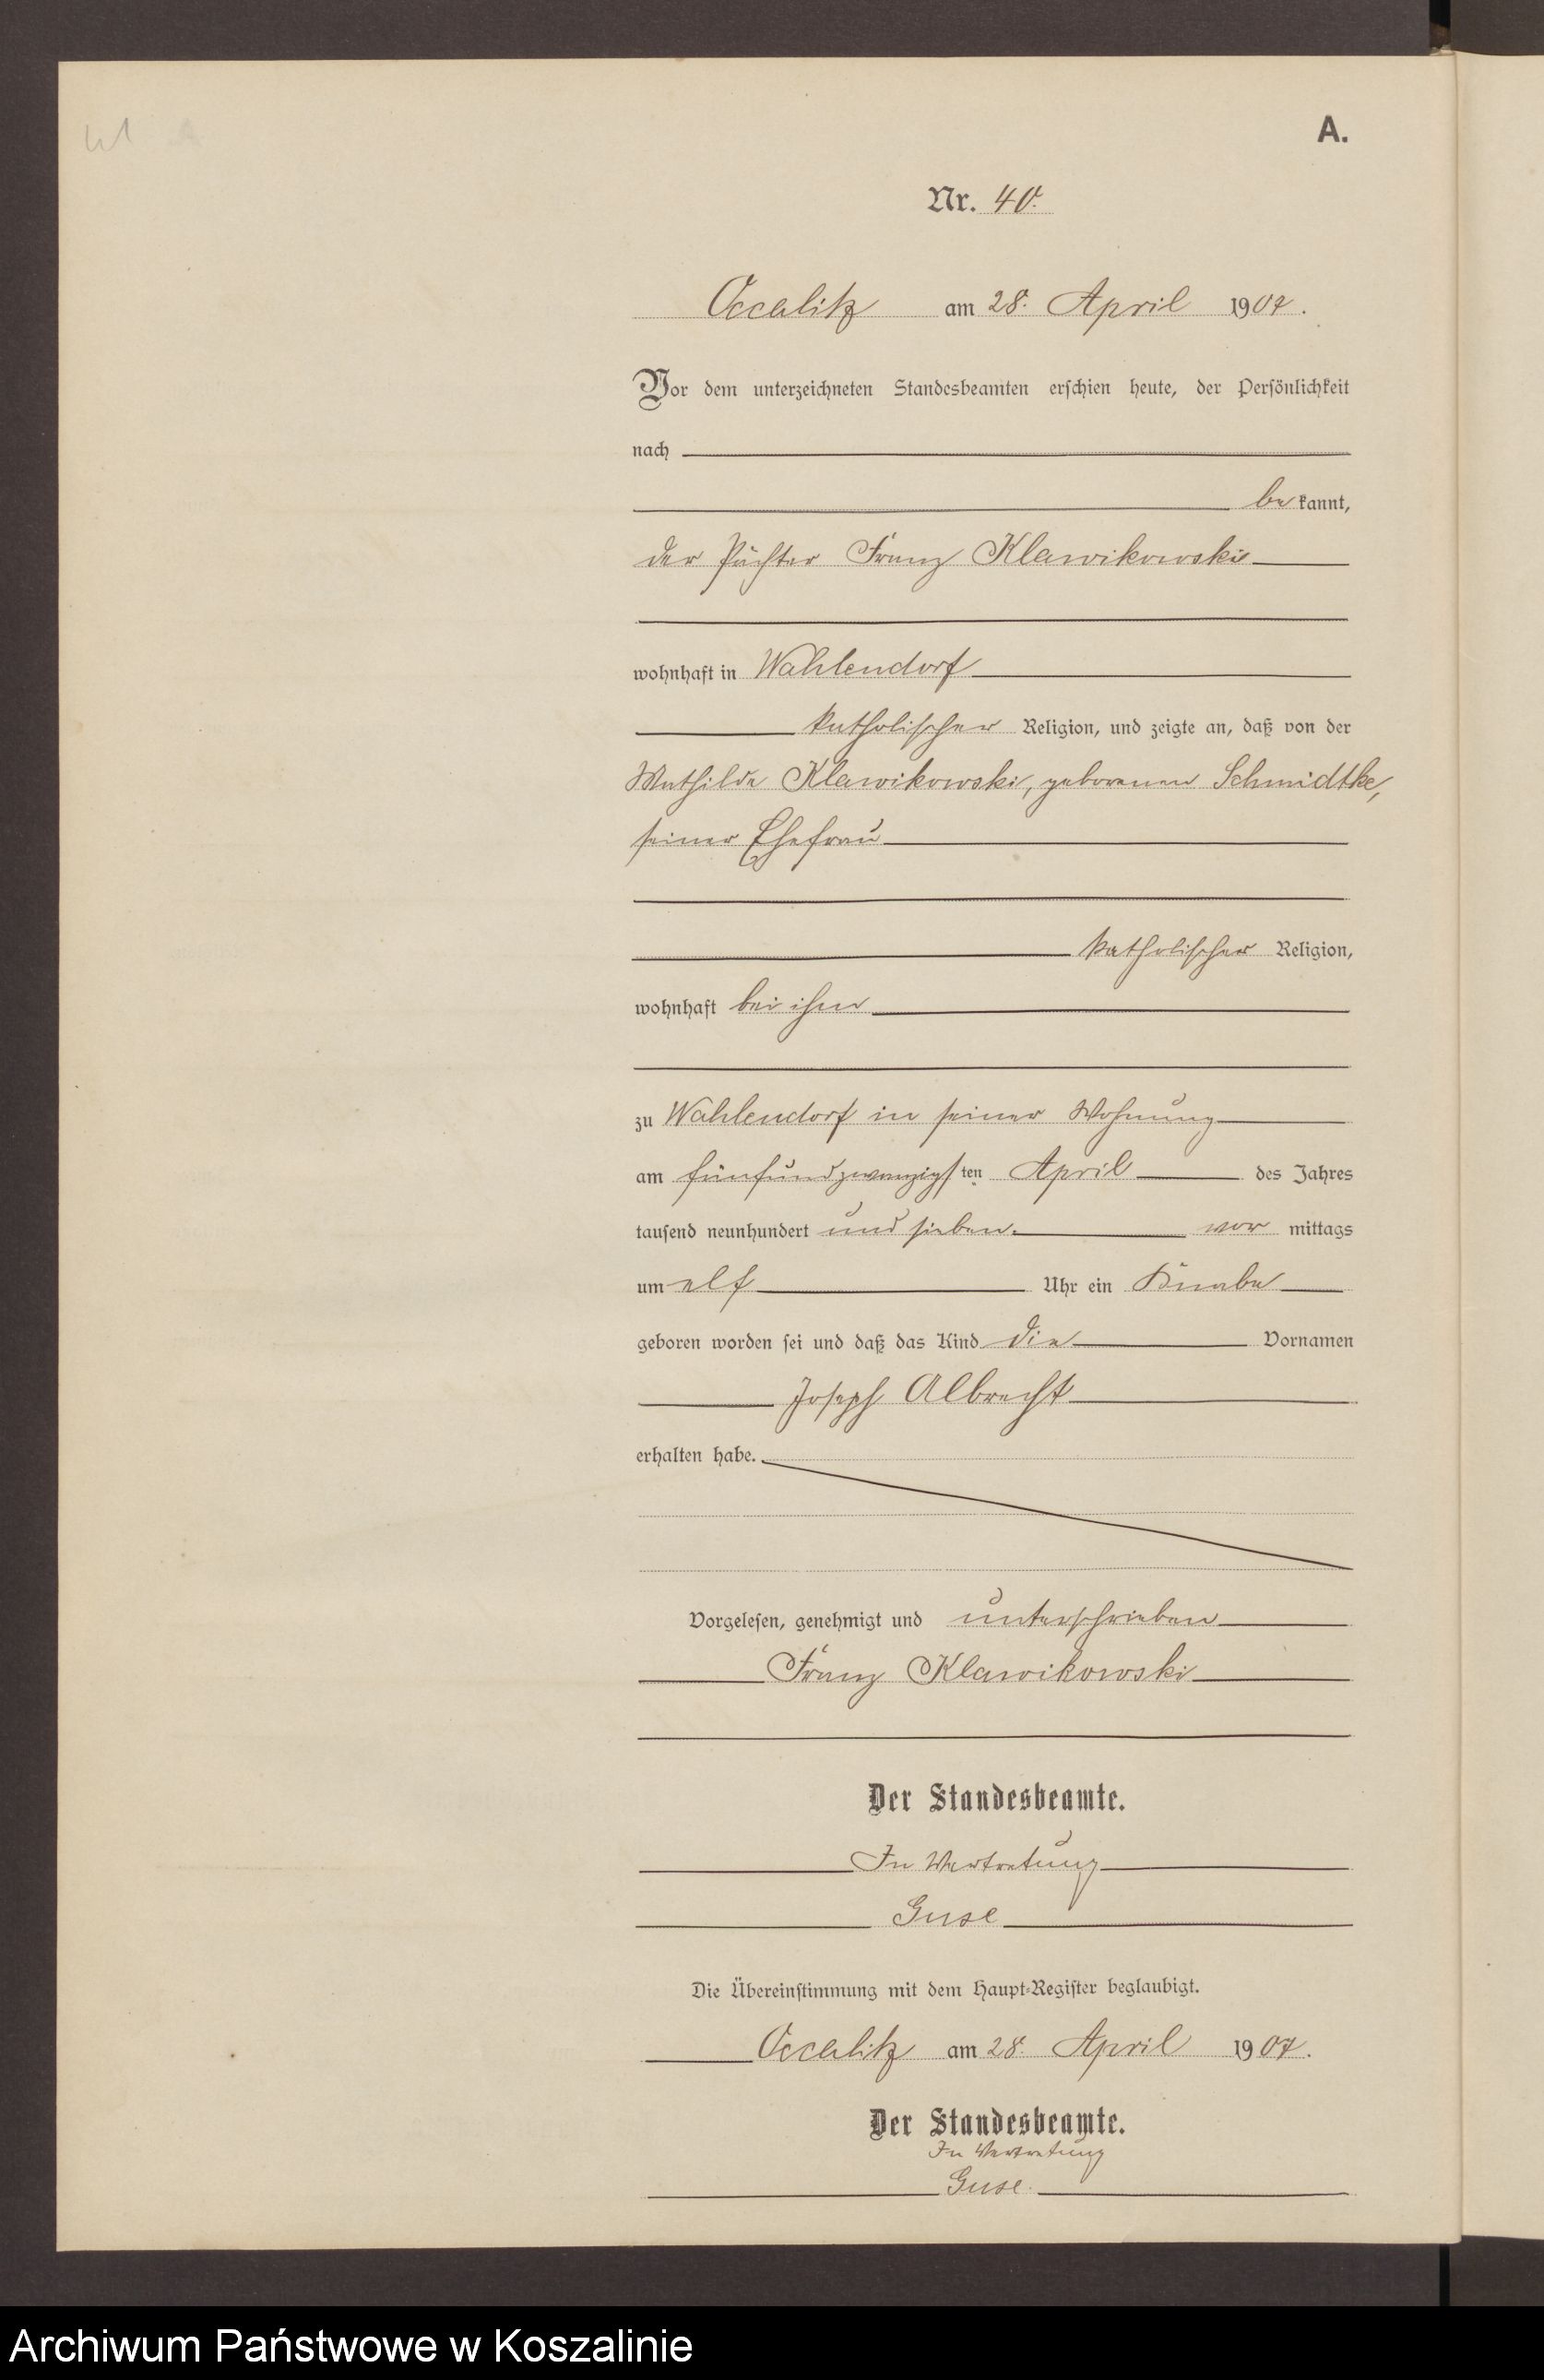 A.
Nr. 40.
Occalitz am 28. April 1907.
Vor dem unterzeichneten Standesbeamten erschien heute, der Persönlichkeit
nach
be kannt,
der Pächter Franz Klawikowski
wohnhaft in Wahlendorf
katholischer Religion, und zeigte an, daß von der
Mathilde Klawikowski, geborenen Schmidtke,
seiner Ehefrau
katholischer Religion,
wohnhaft bei ihm
zu Wahlendorf in seiner Wohnung
am fünfundzwanzigsten April des Jahres
tausend neunhundert und sieben vor mittags
um elf Uhr ein Knabe
geboren worden sei und daß das Kind die Vornamen
Joseph Albrecht
erhalten habe.
Vorgelesen, genehmigt und unterschrieben
Franz Klawikowski
Der Standesbeamte.
In Vertretung
Guse
Die Übereinstimmung mit dem Haupt-Register beglaubigt.
Occalitz am 28. April 1907.
Der Standesbeamte.
In Vertretung
Guse.
Archiwum Państwowe w Koszalinie